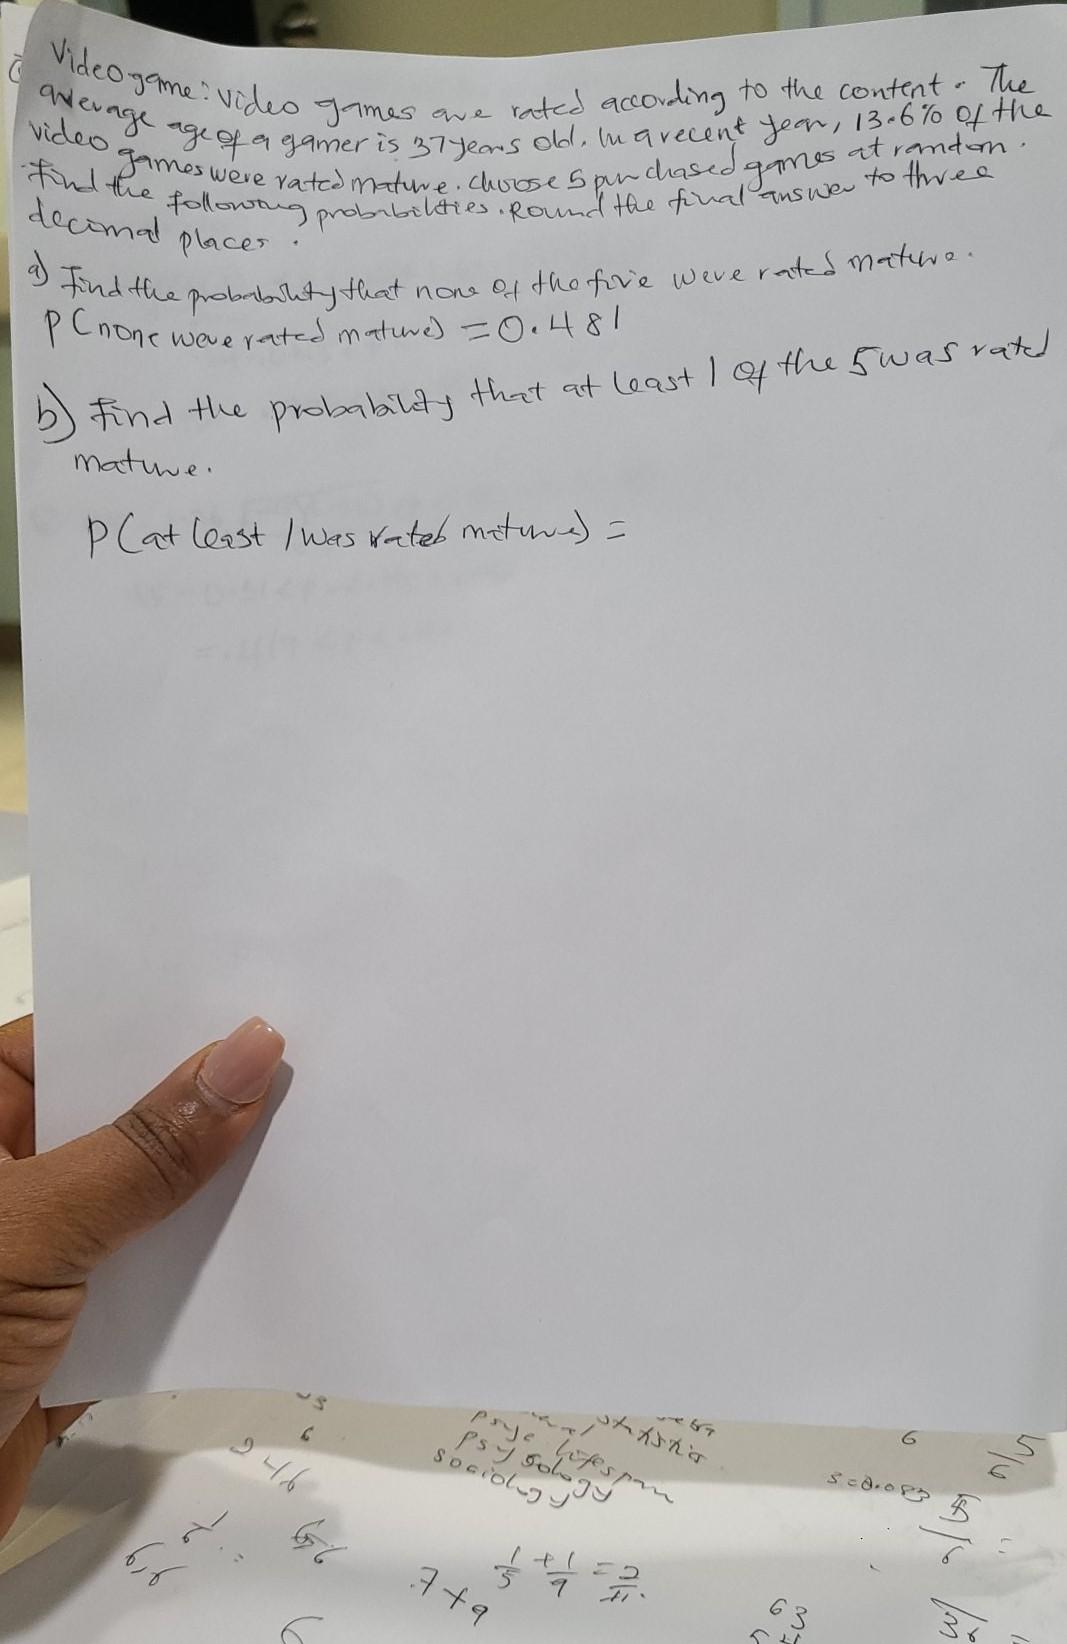 Videogame: video games are rated according to the content. The
average age of a gamer is 37 years old. In a recent year, 13.6% of the
video games were rated mature. choose 5 purchased games at random.
find the following probabilities. Round the final answer to three
decimal places.
a) Find the probability that none of the five were rated mature.
P(none were rated mature) = 0.481
b) Find the probability that at least 1 of the 5 was rated
mature.
P(at least 1 was rated mature) =
6
5/6
psyc lifespan
psy
sociology
s=0.083
5/6 =
1/5 + 1/9 = 2/11.
7 x 9
63